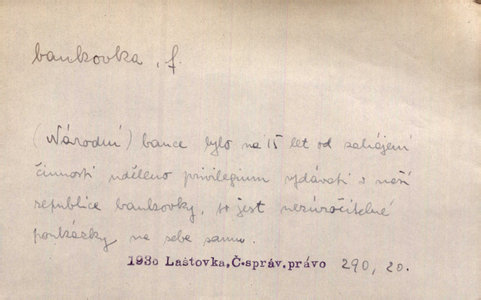 bankovka, f.
(Národní) bance bylo na 15 let od zahájení
činnosti uděleno privilegium vydávati v naší
republice bankovky, to jest nezúročitelné
poukázky na sebe samu.
1936 Laštovka, Č-správ. právo 290, 20.